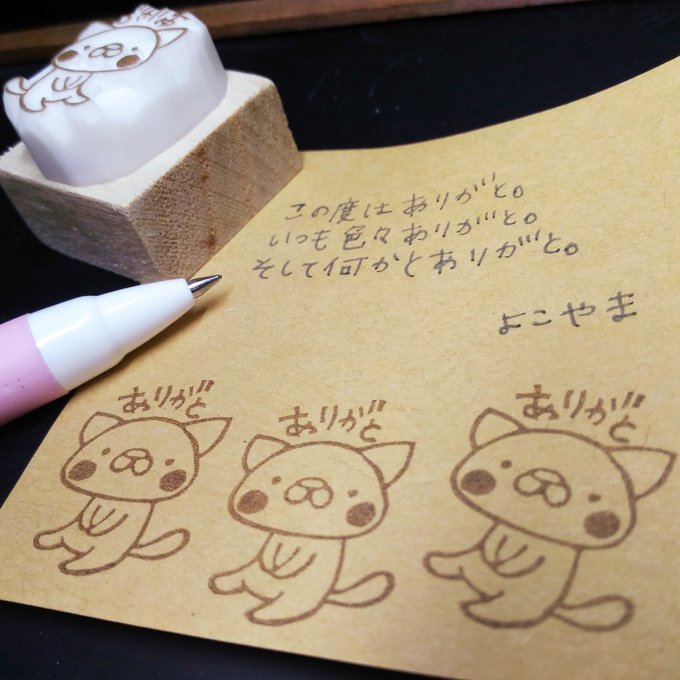 ありがと
この度はありがと。
いつも色々ありがと。
そして何かとありがと。
よこやま
ありがと
ありがと
ありがと